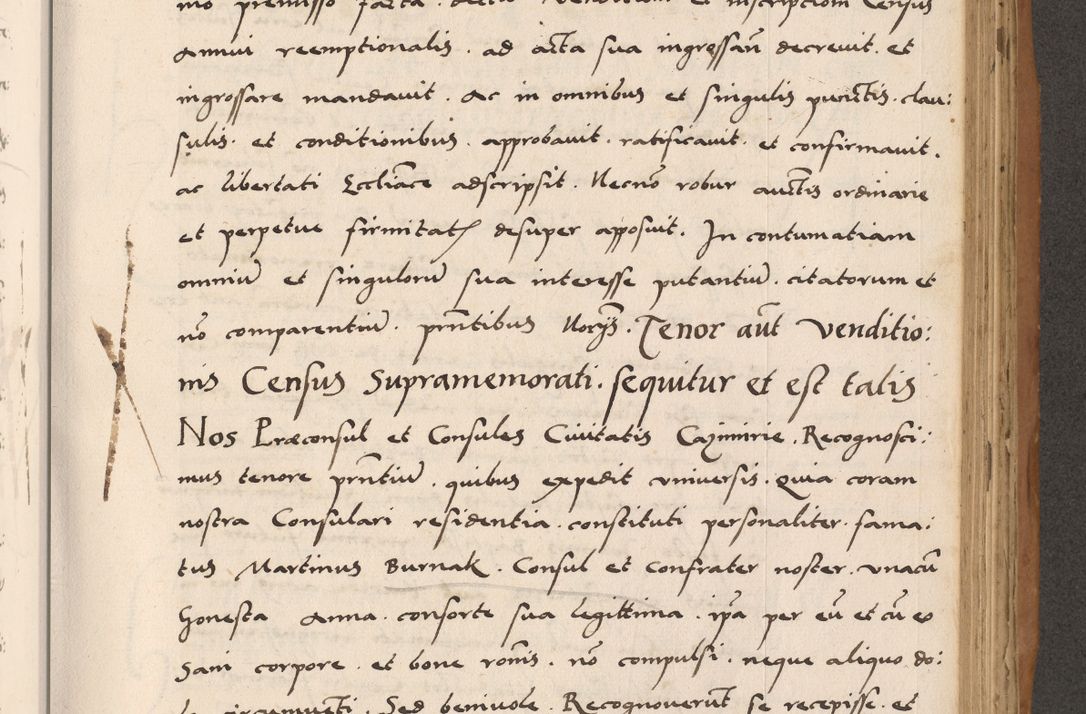 mo premisso facta. dictā venditionem et inscriptionem Census
Annui reemptionalis. ad acta sua ingrossarī decrevit. et
ingrossare mandavit. Ac in omnibus et singulis punctis. clau:
sulis. et conditionibus. approbavit. ratificavit. et confirmavit.
ac libertati Eccliãce adscripsit. Necnō robur auctīs ordinarie
et perpetue firmitatis desuper apposuit. In contumatiam
omniū et singulorū sua interesse putantiū. citatorum et
nō comparentiū. pn̄tibus Noc̄ijs. Tenor aūt venditio:
nis Census supramemorati. sequitur et est talis
Nos Præconsul et Consules Civitatis Cazimirie. Recognosci:
mus tenore pn̄tiū. quibus expedit vniversis. quia coram
nostra Consulari residentia. constituti personaliter. fama:
tus Martinus Burnak. Consul et Confrater noster. vnacū
honesta Anna. consorte sua legittima. ip̄a per eū et cū eo
Sani corpore. et bone ron̄is. nō compulsi. neque aliquo do:
lo circumventi. Sed benivole. Recognoverūt se recepisse. et